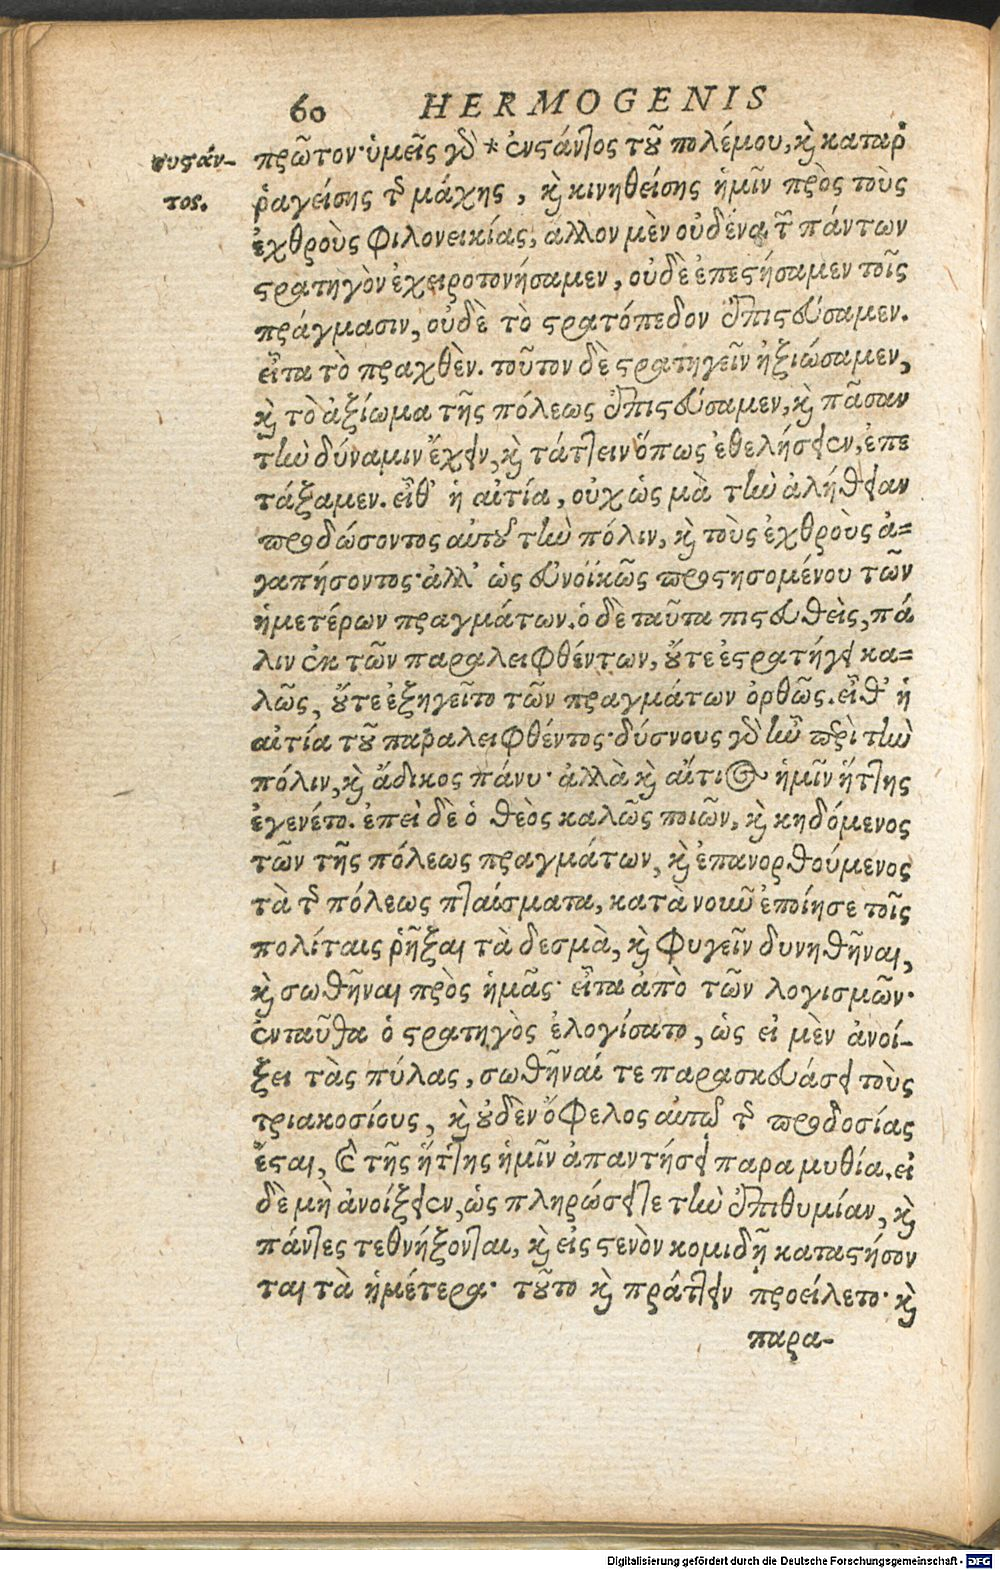 60 HERMOGENIS
συστάν-
τος.
πρῶτον· ὑμεῖς γὰρ * ἐνστάντος τοῦ πολέμου, καὶ καταρ
ῥαγείσης τῆς μάχης, καὶ κινηθείσης ἡμῖν πρὸς τοὺς
ἐχθροὺς φιλονεικίας, ἄλλον μὲν οὐδένα τῶν πάντων
στρατηγὸν ἐχειροτονήσαμεν, οὐδὲ ἐπεστήσαμεν τοῖς
πράγμασιν, οὐδὲ τὸ στρατόπεδον ἐπιστεύσαμεν.
εἶτα τὸ πραχθὲν. τοῦτον δὲ στρατηγεῖν ἠξιώσαμεν,
καὶ τὸ ἀξίωμα τῆς πόλεως ἐπιστεύσαμεν, καὶ πᾶσαν
τὴν δύναμιν ἔχειν, καὶ τάττειν ὅπως ἐθελήσειεν, ἐπε
τάξαμεν. εἶθ' ἡ αἰτία, οὐχ ὡς μὰ τὴν ἀλήθειαν
προδώσοντος αὐτοῦ τὴν πόλιν, καὶ τοὺς ἐχθροὺς ἀ=
γαπήσοντος· ἀλλ' ὡς εὐνοϊκῶς προστησομένου τῶν
ἡμετέρων πραγμάτων. ὁ δὲ ταῦτα πιστευθεὶς, πά
λιν ἐκ τῶν παραλειφθέντων, οὔτε ἐστρατήγει κα=
λῶς, οὔτε ἐξηγεῖτο τῶν πραγμάτων ὀρθῶς. εἶθ' ἡ
αἰτία τοῦ παραλειφθέντος· δύσνους γὰρ ἦν περὶ τὴν
πόλιν, καὶ ἄδικος πάνυ· ἀλλὰ καὶ αἴτιος ἡμῖν ἥττης
ἐγενέτο. ἐπεὶ δὲ ὁ θεὸς καλῶς ποιῶν, καὶ κηδόμενος
τῶν τῆς πόλεως πραγμάτων, καὶ ἐπανορθούμενος
τὰ τῆς πόλεως πταίσματα, κατὰ νοῦν ἐποίησε τοῖς
πολίταις ῥῆξαι τὰ δεσμὰ, καὶ φυγεῖν δυνηθῆναι,
καὶ σωθῆναι πρὸς ἡμᾶς· εἶτα ἀπὸ τῶν λογισμῶν·
ἐνταῦθα ὁ στρατηγὸς ἐλογίσατο, ὡς εἰ μὲν ἀνοί-
ξει τὰς πύλας, σωθῆναί τε παρασκευάσει τοὺς
τριακοσίους, καὶ οὐδὲν ὄφελος αὐτῷ τῆς προδοσίας
ἔσται, καὶ τῆς ἥττης ἡμῖν ἀπαντήσει παραμυθία. εἰ
δὲ μὴ ἀνοίξειεν, ὡς πληρώσει τε τὴν ἐπιθυμίαν, καὶ
πάντες τεθνήξονται, καὶ εἰς στενὸν κομιδῇ καταστήσον
ται τὰ ἡμέτερα· τοῦτο καὶ πράττειν προείλετο· καὶ
παρα-
Digitalisierung gefördert durch die Deutsche Forschungsgemeinschaft - DFG